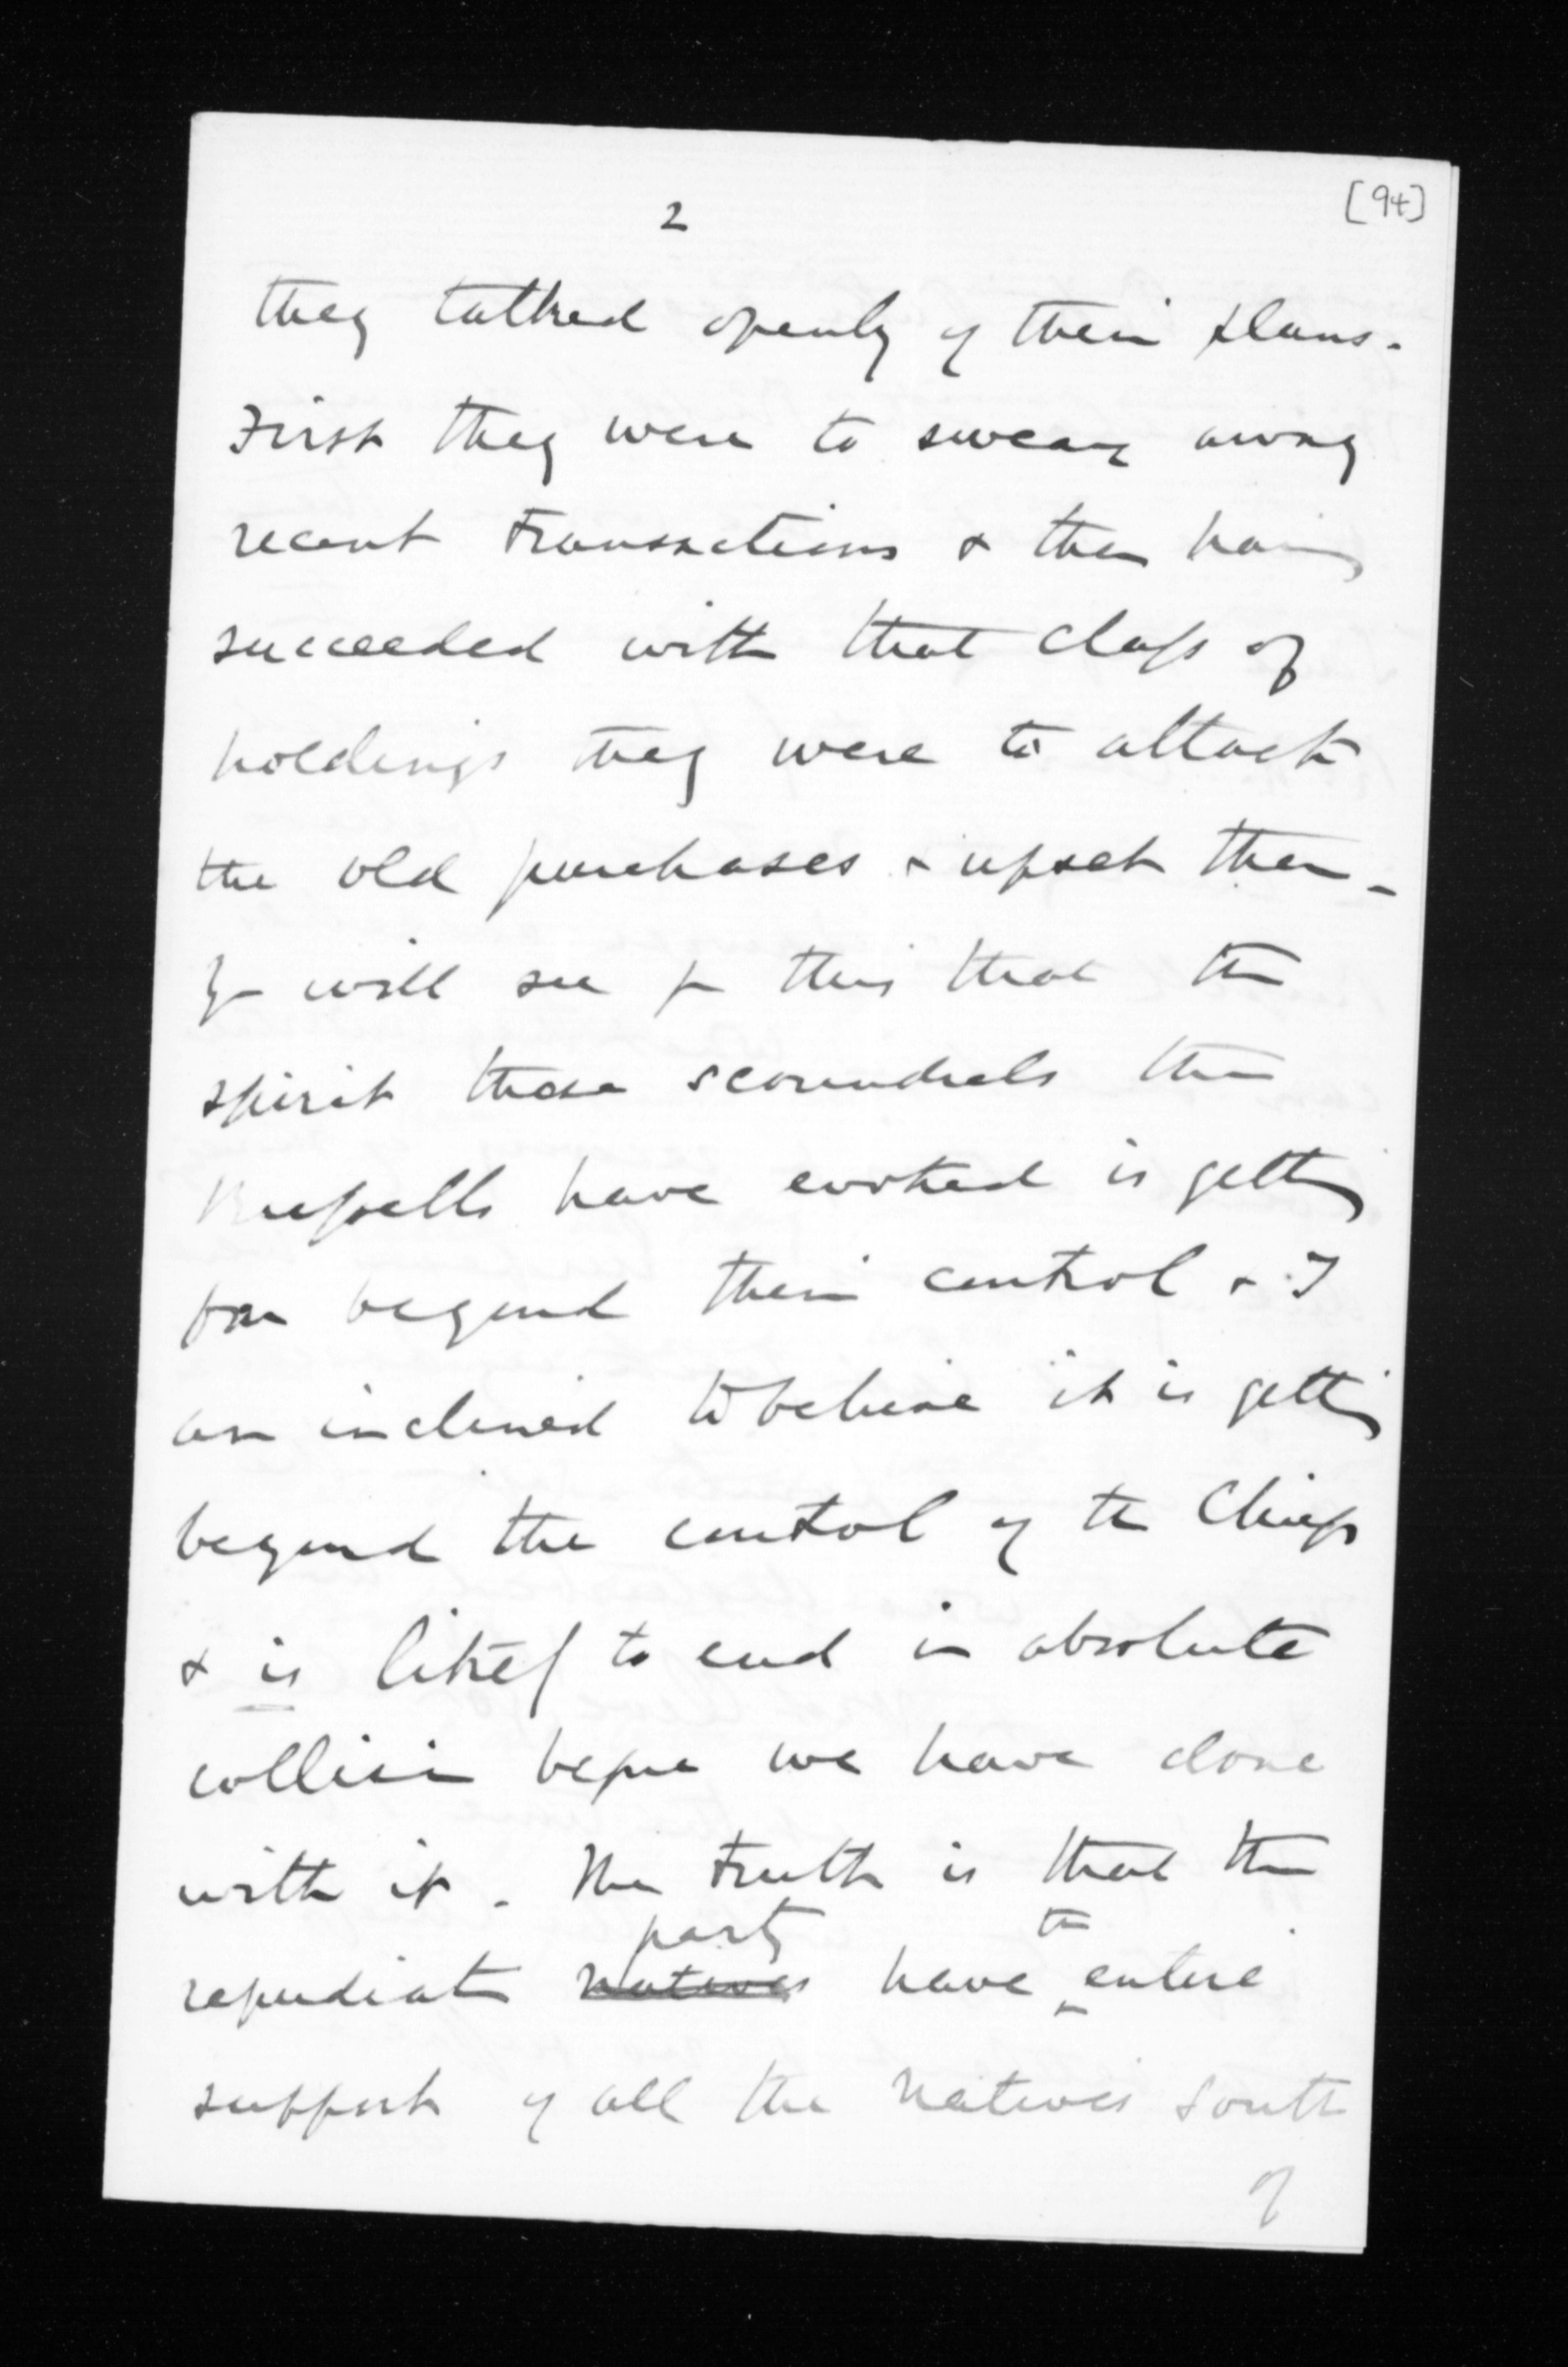 [94]
2
they talked openly of their plans.
First they were to swear away
recent transactions & then having
succeeded with that class of
holdings they were to attack
the old purchases & upset them -
Yr will see fr this that the
spirit these scoundrels the
Russells have evoked is getting
far beyond their control & I
am inclined to believe it is getting
beyond the control of the Chiefs
& is likely to end in absolute
collision before we have done
with it. The truth is that the
party the
repudiation natives have entire
support of all the natives south
of